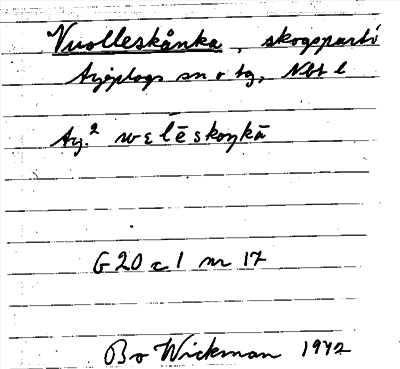 Vuolleskånka, skogsparti
Arjeplogs sn o tg, Nbt l
Arj.² wɛlēskoŋkā
G 20 c 1 nr 17
Bo Wickman 1972